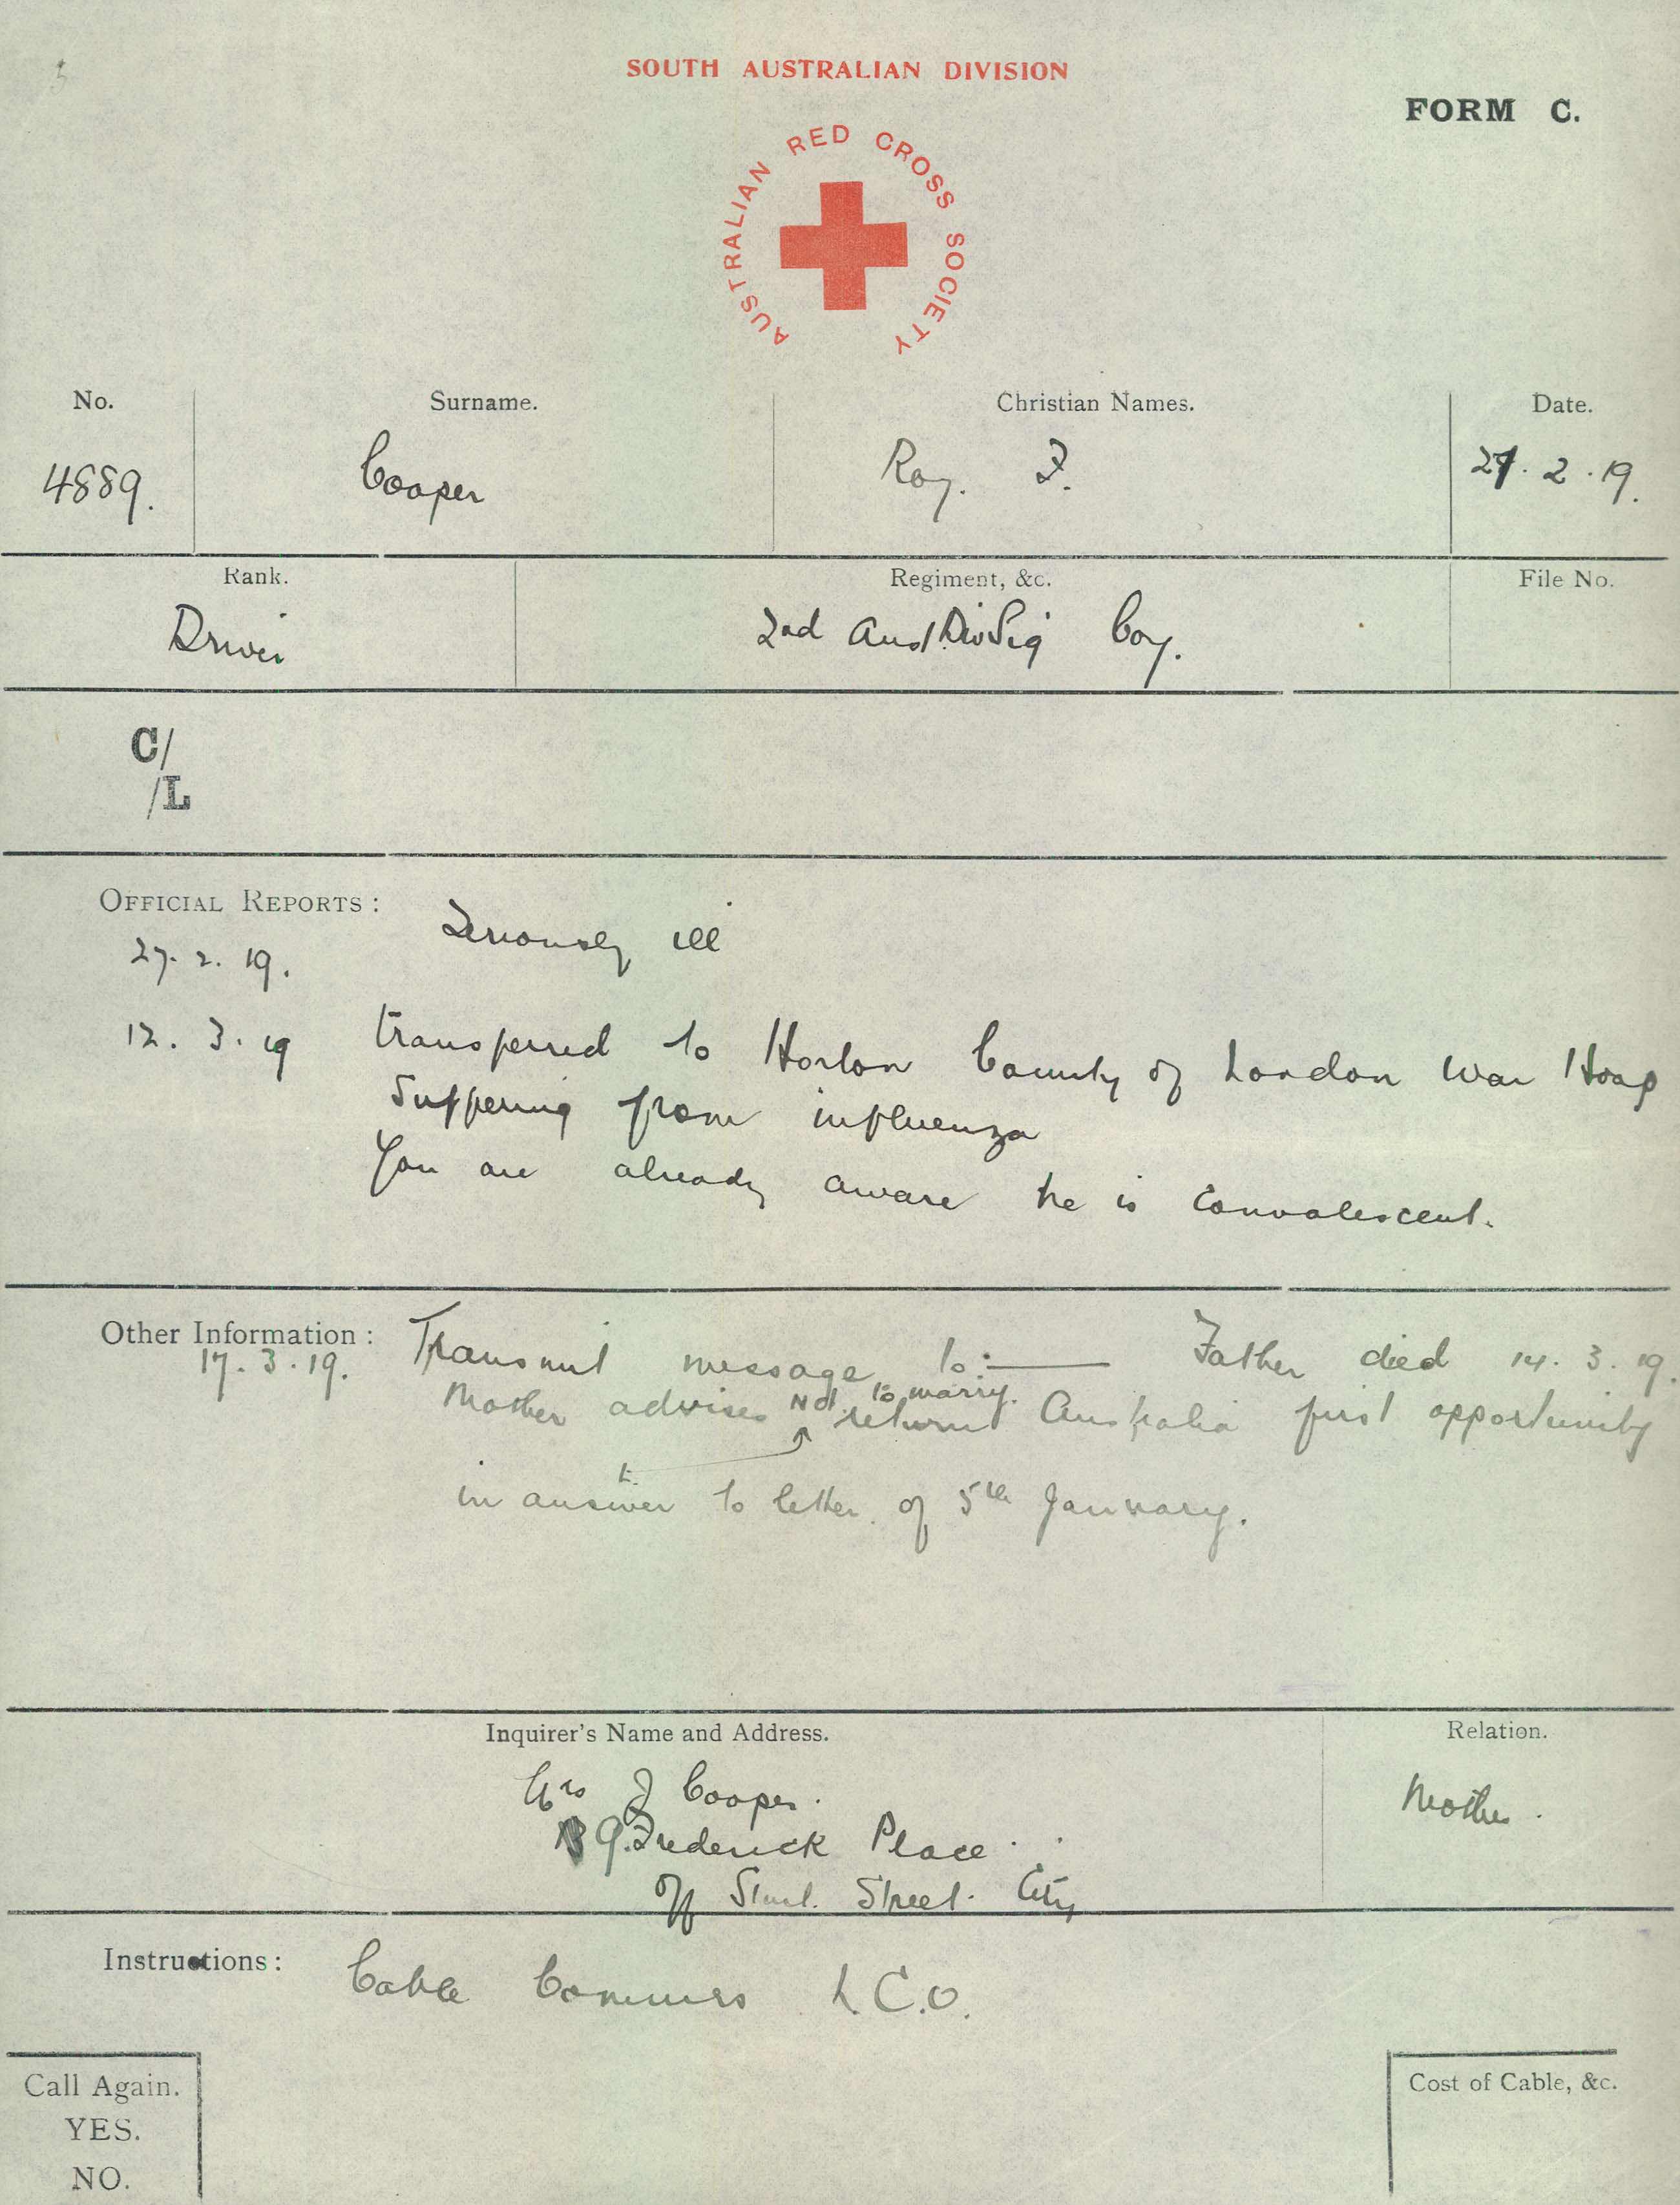 SOUTH AUSTRALIAN DIVISION
FORM C.
AUSTRALIAN RED CROSS SOCIETY
No. Surname. Christian Names. Date.
4889. Cooper Roy. F. 27. 2. 19.
Rank. Regiment, &c. File No.
Driver 2nd Aust Div Sig Coy.
C/
/L
OFFICIAL REPORTS:
Seriously ill
27. 2. 19.
12. 3. 19 transferred to Horton County of London War Hosp
Suffering from influenza
You are already aware he is convalescent.
Other Information: Transmit message to:— Father died 14. 3. 19.
17. 3. 19.
Not to marry.
Mother advises return Australia first opportunity
in answer to letter of 5th January.
Inquirer's Name and Address. Relation.
Mrs J Cooper. Mother.
9. Frederick Place
off Sturt Street City
Instructions: Cable Commrs L.C.O.
Call Again.
YES.
NO.
Cost of Cable, &c.